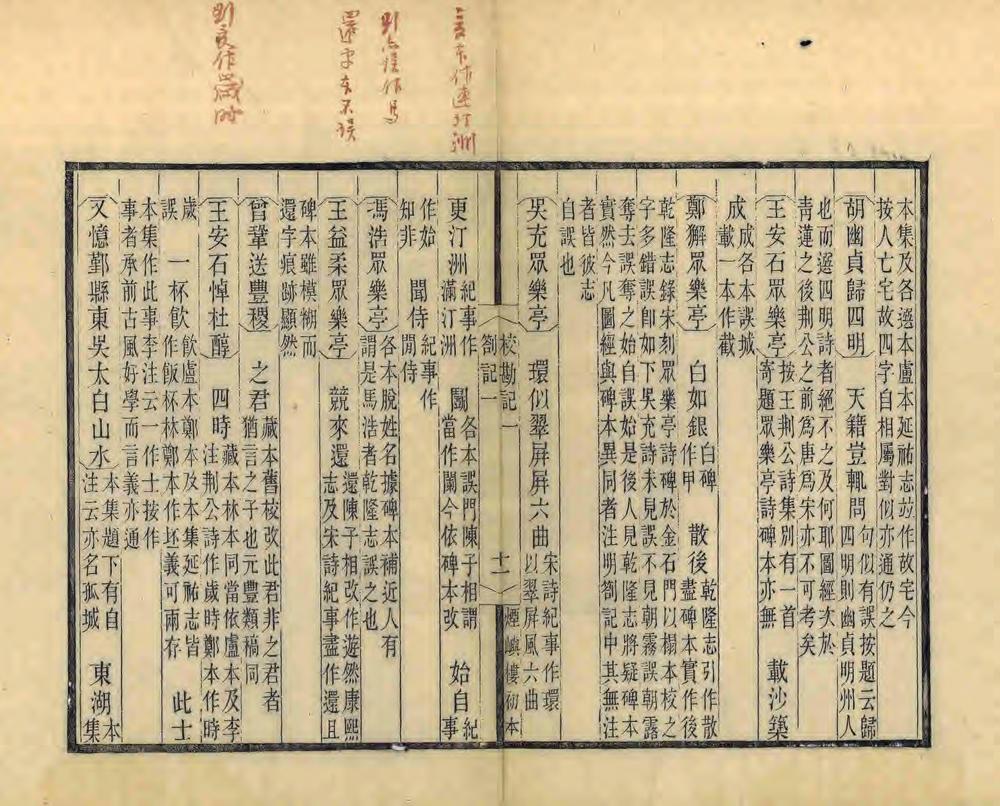 本集及各選本盧本延祐志竝作故宅今
按人亡宅故四字自相屬對似亦通仍之
胡幽貞歸四明 天籟豈輒問 句似有誤按題云歸
四明則幽貞明州人
也而選四明詩者絕不之及何耶圖經次於
靑蓮之後荆公之前爲唐爲宋亦不可考矣
王安石眾樂亭 按王荆公詩集別有一首
寄題眾樂亭詩碑本亦無
載沙築
成 成各本誤城
載一本作截
鄭獬眾樂亭 白如銀 白碑
作甲
散後 乾隆志引作散
盡碑本實作後
乾隆志錄宋刻眾樂亭詩碑於金石門以榻本校之
字多錯誤卽如下吳充詩未見誤不見朝霧誤朝露
奪去誤奪之始自誤始是後人見乾隆志將疑碑本
實然今凡圖經與碑本異同者注明劄記中其無注
者皆彼志
自誤也
吳充眾樂亭 環似翠屏屏六曲 宋詩紀事作環
以翠屏風六曲
校勘記一
劄記一
十一
煙嶼樓初本
更汀洲 紀事作
滿汀洲
鬭 各本誤門陳子相謂
當作闌今依碑本改
始自 紀
事
作始
知非
聞侍 紀事作
閒侍
馮浩眾樂亭 各本脫姓名據碑本補近人有
謂是馬浩者乾隆志誤之也
王益柔眾樂亭 競來還 還陳子相改作遊然康熙
志及宋詩紀事盡作還且
碑本雖模糊而
還字痕跡顯然
曾鞏送豐稷 之君 藏本舊校改此君非之君者
猶言之子也元豐類稿同
王安石悼杜醇 四時 藏本林本同當依盧本及李
注荆公詩作歲時鄭本作時
歲
誤
一杯飮 飮盧本鄭本及本集延祐志皆
作飯杯林鄭本作坯義可兩存
此士
本集作此事李注云一作士按作
事者承前古風好學而言義亦通
又憶鄞縣東吳太白山水 本集題下有自
注云亦名孤城
東湖 本
集
言本作連汀洲
還字本不誤
劉良作歲時